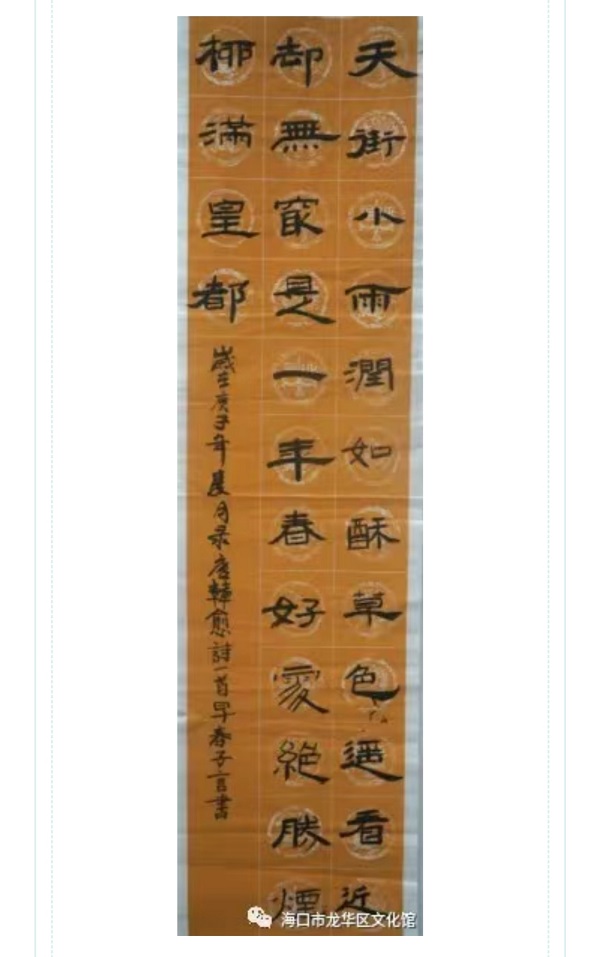 天街小雨潤如酥草色遥看近
却無㝡是一年春好處絕勝煙
柳滿皇都
歲在庚子年夏月录唐韓愈詩一首早春子言書
海口市龙华区文化馆